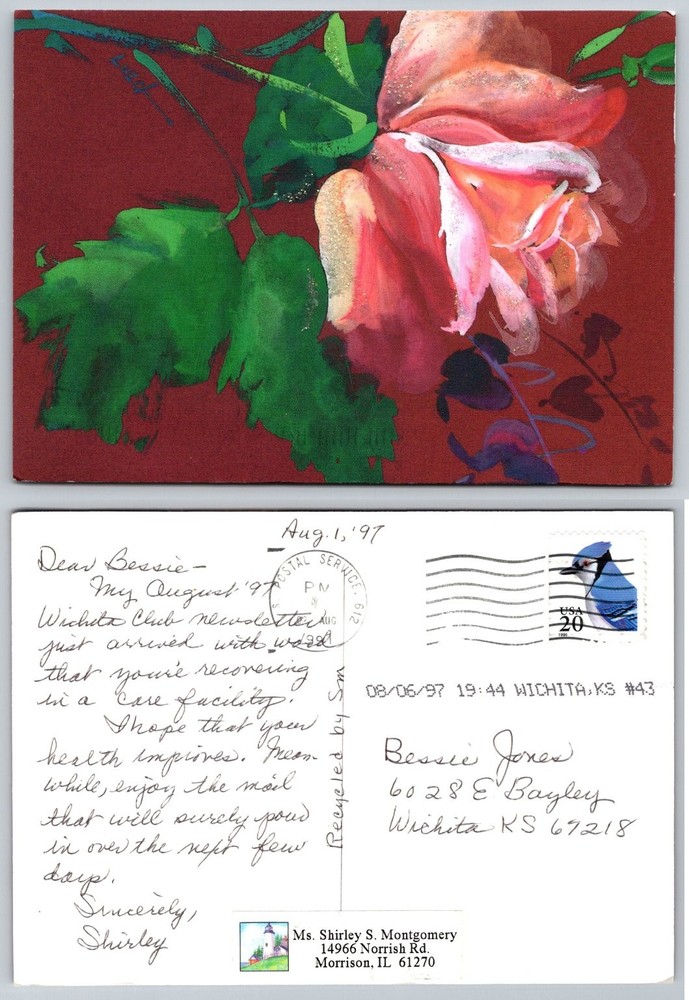 Aug. 1, '97
Dear Bessie-
My August '97
Wichita Club newsletter
just arrived with word
that you're recovering
in a care facility.
I hope that your
health improves. Mean-
while, enjoy the mail
that will surely pour
in over the next few
days.
Sincerely,
Shirley
Recycled by Sm
POSTAL SERVICE, 612
PM
AUG
1997
USA
20
1996
08/06/97 19:44 WICHITA,KS #43
Bessie Jones
6028 E Bayley
Wichita KS 67218
Ms. Shirley S. Montgomery
14966 Norrish Rd.
Morrison, IL 61270